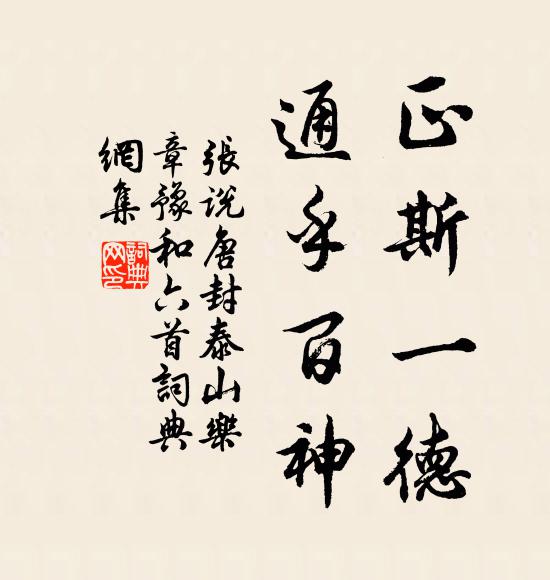 正斯一德
通乎百神
張說唐封泰山樂
章豫和六首詞典
網集
詞典
网印